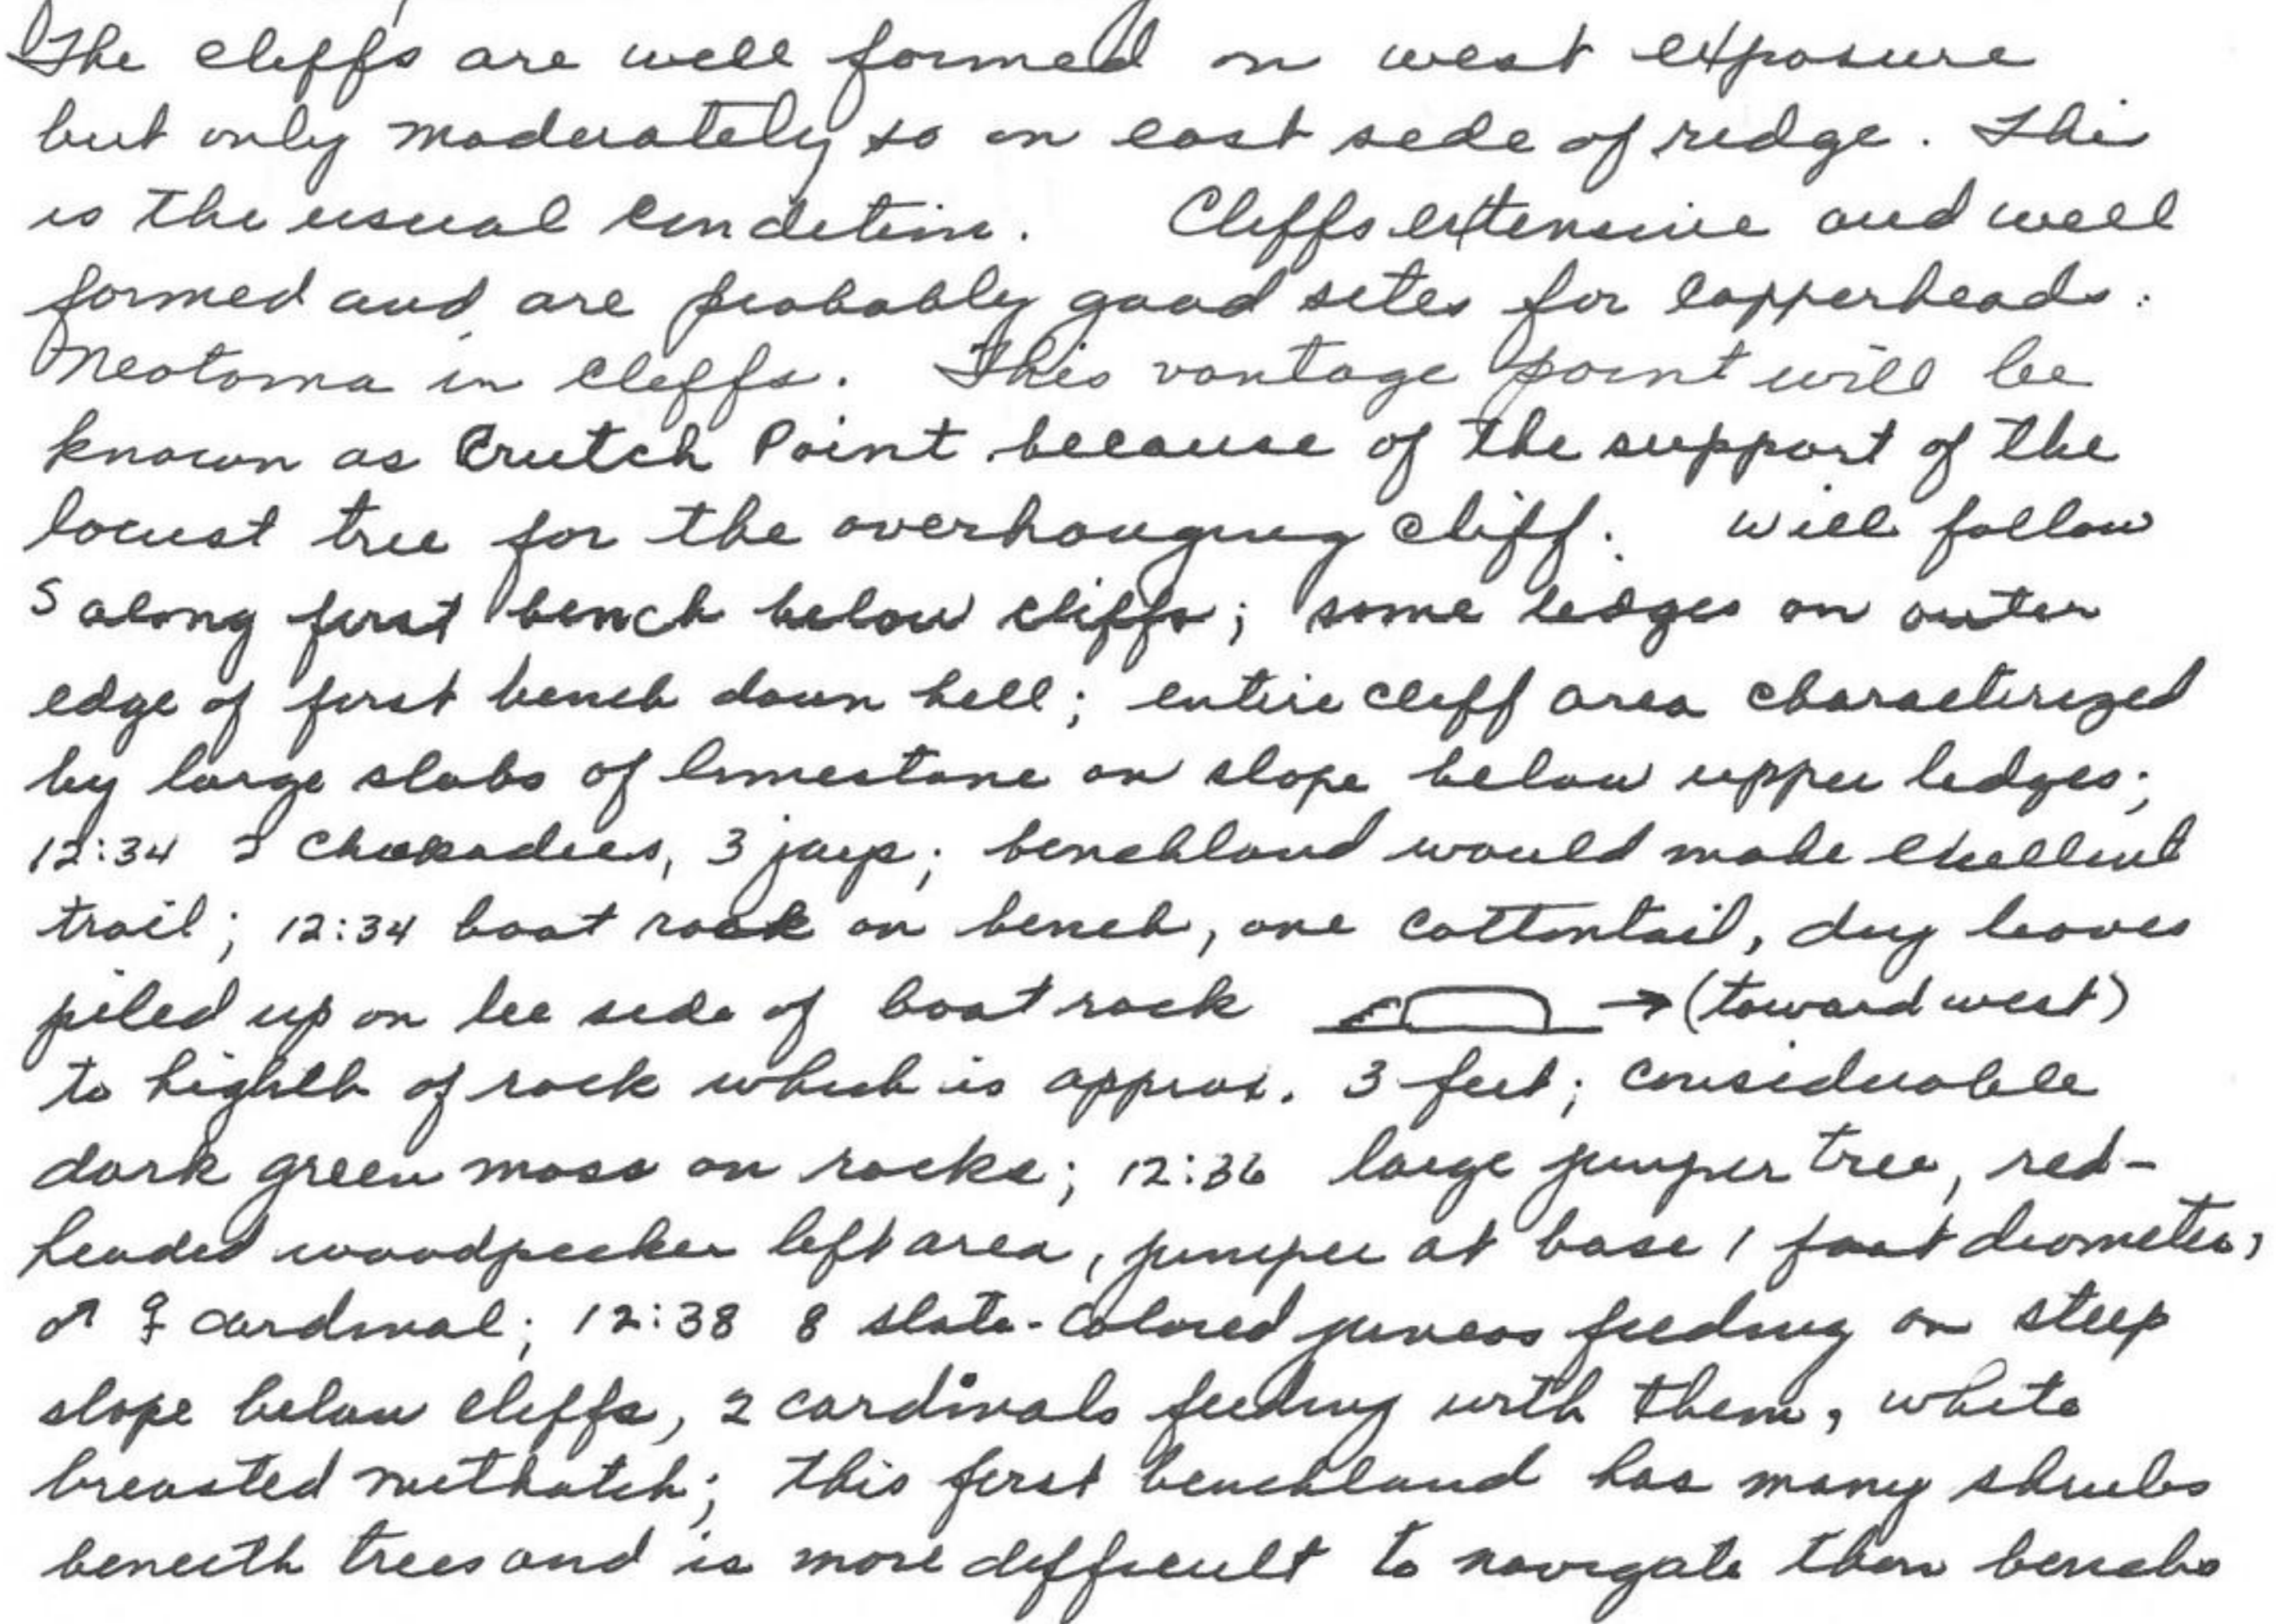 The cliffs are well formed on west exposure
but only moderately so on east side of ridge. This
is the usual condition. Cliffs extensive and well
formed and are probably good sites for copperheads.
Neotoma in cliffs. This vantage point will be
known as Crutch Point because of the support of the
locust tree for the overhanging cliff. Will follow
S along first bench below cliffs; some ledges on outer
edge of first bench down hill; entire cliff area characterized
by large slabs of limestone on slope below upper ledges;
12:34 2 chickadees, 3 jays; benchland would make excellent
trail; 12:34 boat rock on bench, one cottontail, dry leaves
piled up on lee side of boat rock → (toward west)
to highth of rock which is approx. 3 feet; considerable
dark green moss on rocks; 12:36 large juniper tree, red-
headed woodpecker left area, juniper at base 1 foot diameter,
♂ ♀ cardinal; 12:38 8 slate-colored juncos feeding on steep
slope below cliffs, 2 cardinals feeding with them, white
breasted nuthatch; this first benchland has many shrubs
beneath trees and is more difficult to navigate than benchs